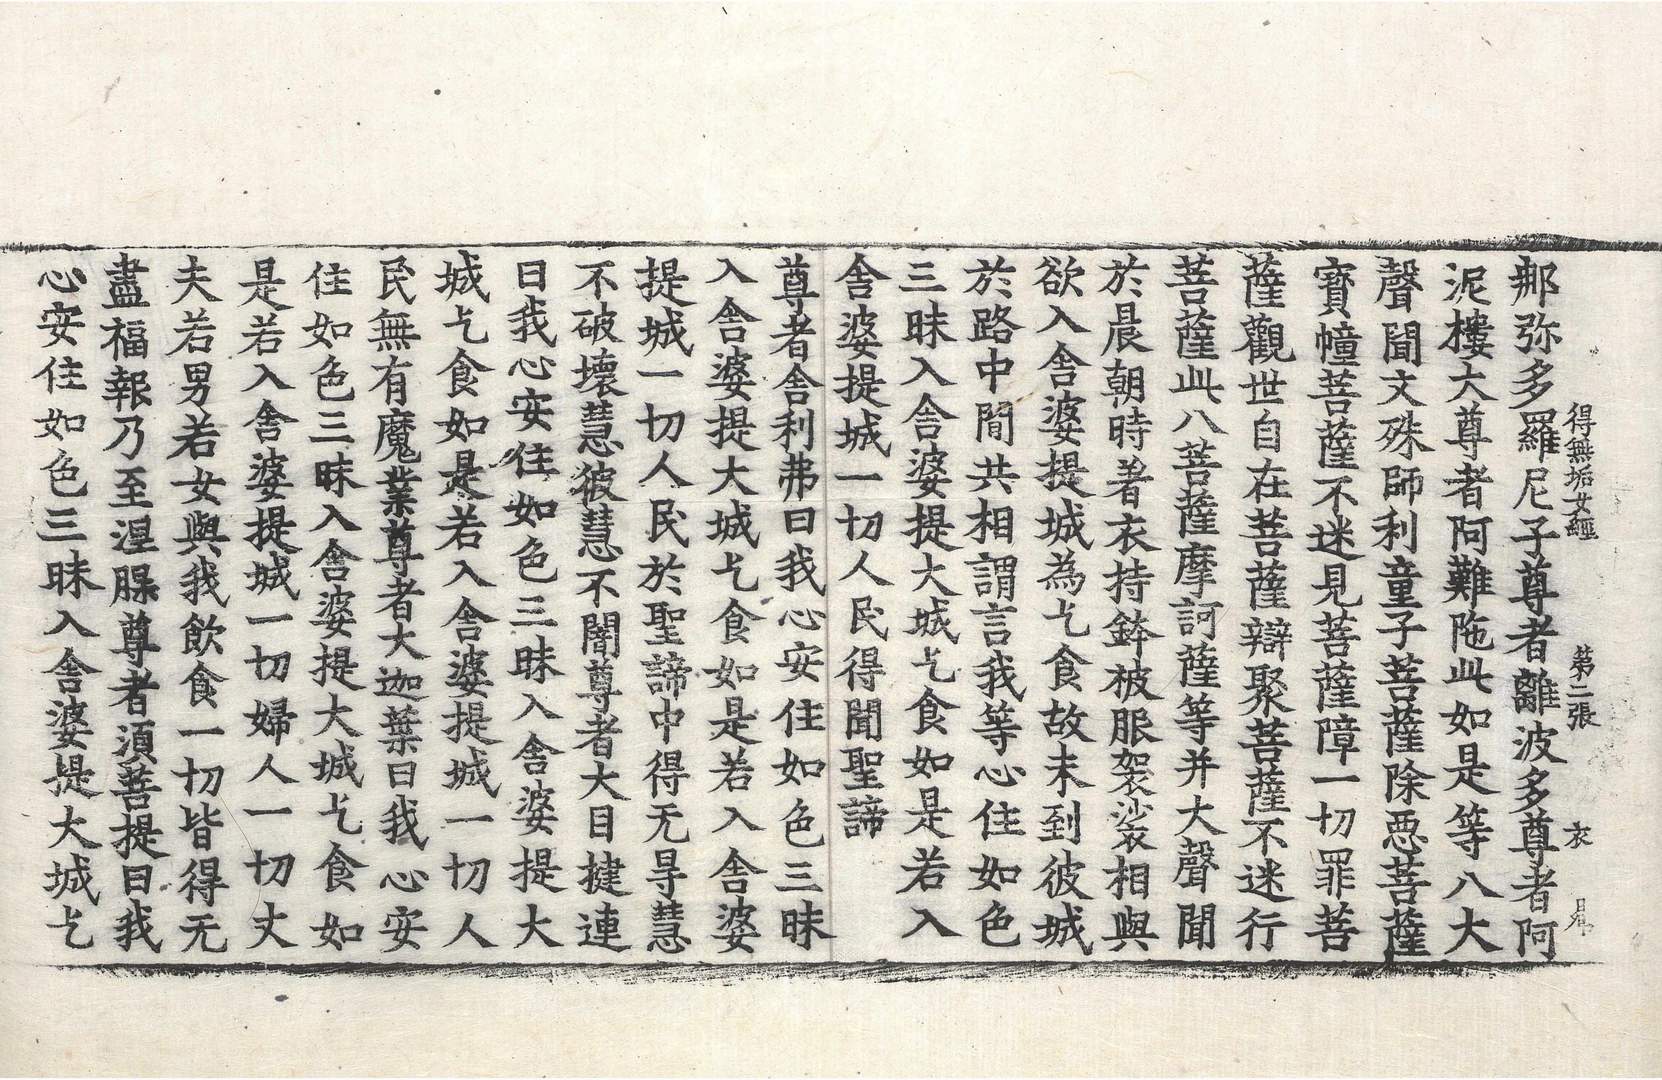 得無垢女經　第二張　衣
那弥多羅尼子尊者離波多尊者阿
泥樓大尊者阿難陁此如是等八大
聲聞文殊師利童子菩薩除惡菩薩
寶幢菩薩不迷見菩薩障一切罪菩
薩觀世自在菩薩辯聚菩薩不迷行
菩薩此八菩薩摩訶薩等并大聲聞
於晨朝時著衣持鉢被服袈裟相與
欲入舍婆提城為乞食故未到彼城
於路中閒共相謂言我等心住如色
三昧入舍婆提大城乞食如是若入
舍婆提城一切人民得聞聖諦
尊者舍利弗曰我心安住如色三昧
入舍婆提大城乞食如是若入舍婆
提城一切人民於聖諦中得无㝵慧
不破壞慧彼慧不闇尊者大目揵連
曰我心安住如色三昧入舍婆提大
城乞食如是若入舍婆提城一切人
民無有魔業尊者大迦葉曰我心安
住如色三昧入舍婆提大城乞食如
是若入舍婆提城一切婦人一切丈
夫若男若女與我飲食一切皆得无
盡福報乃至涅槃尊者須菩提曰我
心安住如色三昧入舍婆提大城乞